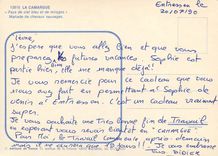 13870 LA CAMARGUE
« Pays de ciel bleu et de mirages »
Manade de chevaux sauvages
Entressen le
20/07/90
j'espère que vous allez bien et que vous
préparez vos futures vacances. Sophie est
partie hier, elle me manque déjà.
Je vous remercie pour ce cadeau que vous
nous avez fait en permettant à Sophie de
venir à Entressen. C'est un cadeau vraiment
super.
Je vous souhaite une très bonne fin de Travail
en espérant vous revoir bientôt en "
Pour moi, le Travail
mais il ne durera que 10 jours!
DIDIER